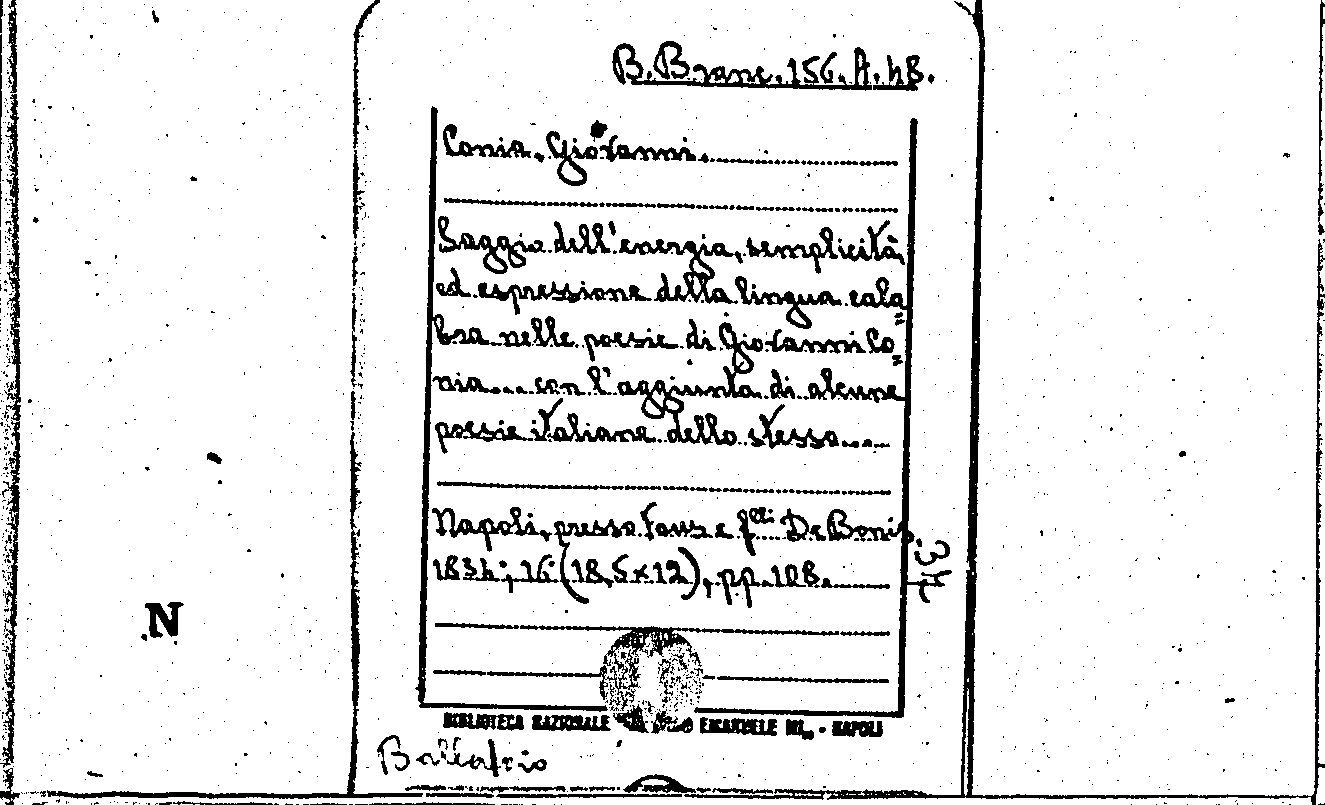 B. Branc. 156. A. 48.
Conia, Giovanni.
Saggio dell'energia, semplicità,
ed espressione della lingua cala
bra nelle poesie di Giovanni Co
nia... con l'aggiunta di alcune
poesie italiane dello stesso....
Napoli, presso Faus e f.lli De Bonis,
1834; 16° (18,5x12), pp. 108.
34
N
BIBLIOTECA NAZIONALE EMANUELE III„ - NAPOLI